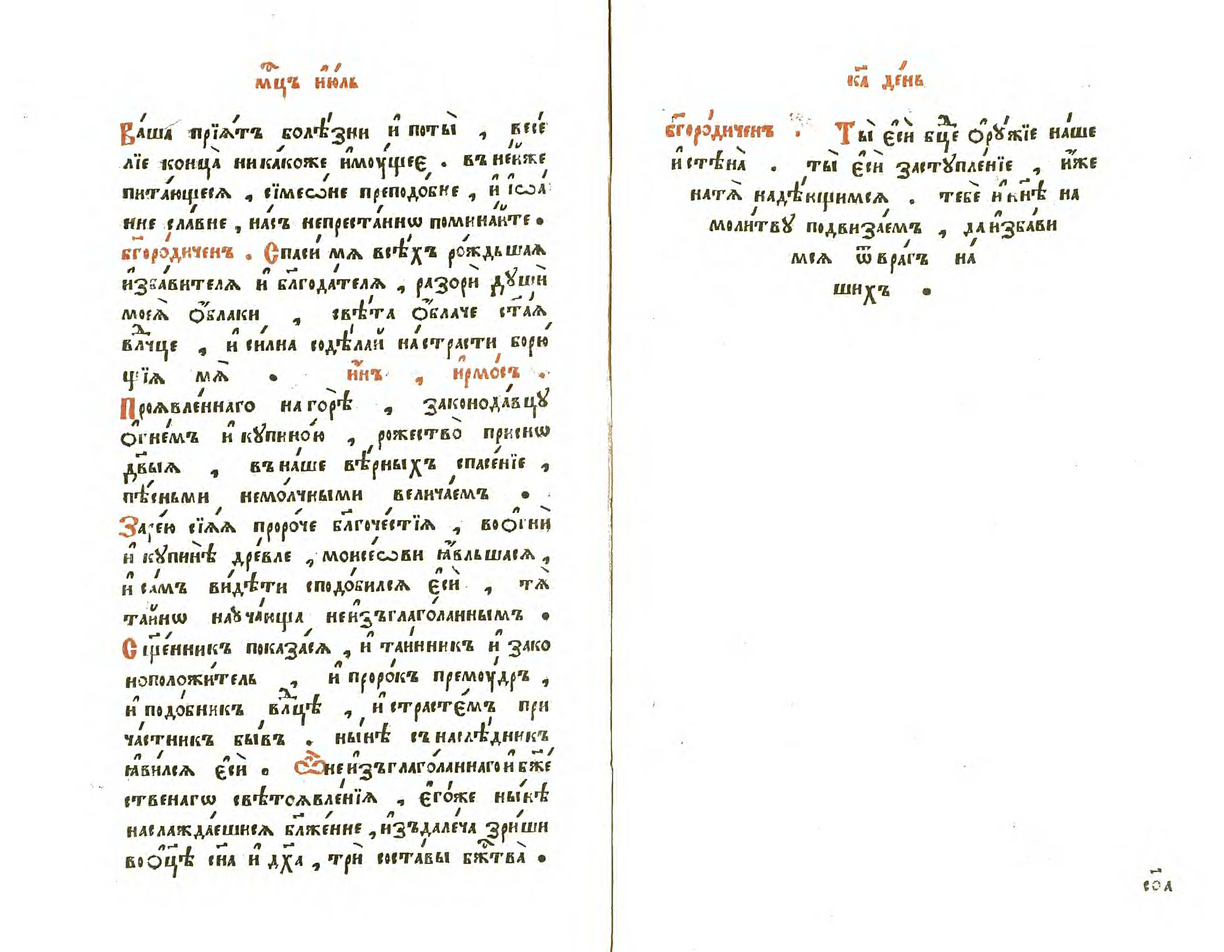 мц҃ъ і҆ю́ль
Ва́ша прїѧ́тъ болѣ́зни и҆ поты̀ , весе́
лїе конца̀ никакоже и҆моу́щеє . въ не́мже
пита́ющесѧ , сїмеѡ́не преподо́бне , и҆ і҆ѡа́
нне сла́вне , на́съ непреста́ннѡ помина́йте .
бг҃оро́диченъ . Спаси́ мѧ всѣ́хъ ро́ждьшаѧ
и҆зба́вителѧ и҆ бл҃года́телѧ , разорѝ дꙋшѝ
моеѧ̀ ѻ҆́блаки , свѣ́та ѻ҆́блаче ст҃а́ѧ
влⷣчце , и҆ си́лна содѣ́лай на стра́сти борю́
щїѧ мѧ̀ . и҆́нъ , і҆рмо́съ .
Проѧвле́ннаго на горѣ̀ , законода́вцꙋ
ѻ҆гне́мъ и҆ кꙋпино́ю , рожество̀ при́снѡ
дв҃ыѧ , въ на́ше вѣ́рныхъ спасе́нїе ,
пѣ́сньми немо́лчными велича́емъ .
Зарею сїѧ́ѧ проро́че бл҃гоче́стїѧ , во ѻ҆гнѝ
и҆ кꙋпи́нѣ дре́вле , моисе́ѡви ꙗ҆́вльшасѧ ,
и҆ са́мъ ви́дѣти сподо́билсѧ є҆сѝ , тѧ̀
та́йнѡ наꙋча́юща неи҆зъглаго́ланнымъ .
Сщ҃е́нникъ показа́сѧ , и҆ та́инникъ и҆ зако
ноположи́тель , и҆ проро́къ премоу́дръ ,
и҆ подо́бникъ влⷣцѣ , и҆ страсте́мъ при
ча́стникъ бы́въ . ны́нѣ снаслѣ́дникъ
ꙗ҆ви́лсѧ є҆сѝ . Ѽ неи҆зъглаго́ланнаго и҆ бж҃е́
ственагѡ свѣтоѧвле́нїѧ , є҆го́же ны́нѣ
наслажда́ешисѧ бл҃же́нне , и҆зъ дале́ча зри́ши
во ѻ҆ц҃ѣ̀ сн҃а и҆ дх҃а , трѝ соста́вы бж҃тва̀ .
к҃а де́нь
бг҃оро́диченъ . Ты̀ є҆сѝ бц҃е ѻ҆рꙋ́жїе на́ше
и҆ стѣна̀ . ты̀ є҆сѝ застꙋпле́нїе , и҆́же
на тѧ̀ надѣ́ющимсѧ . тебѐ и҆ ны́нѣ на
моли́твꙋ подвиза́емъ , да и҆зба́ви
мсѧ ѿ вра́гъ на́
шихъ .
со҃а